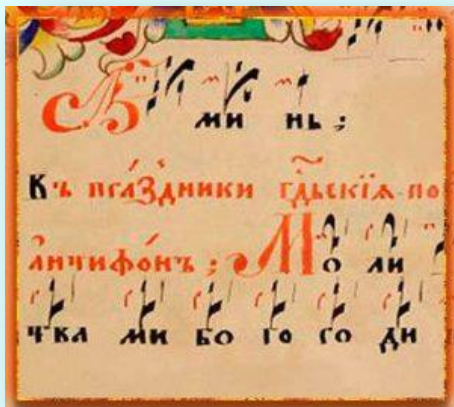 А ми нь ;
Въ пра́здники гд҃ьскїѧ по
а҆нтифо́нъ ; Мо ли
тва ми бо го ро ди